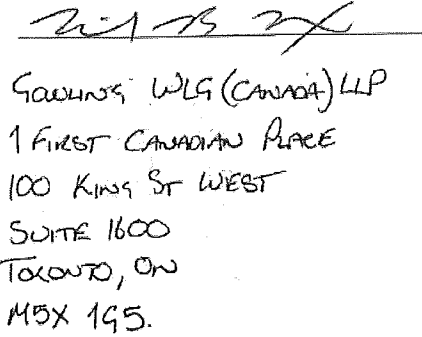 Gowling WLG (Canada) LLP
1 First Canadian Place
100 King St West
Suite 1600
Toronto, ON
M5X 1G5.